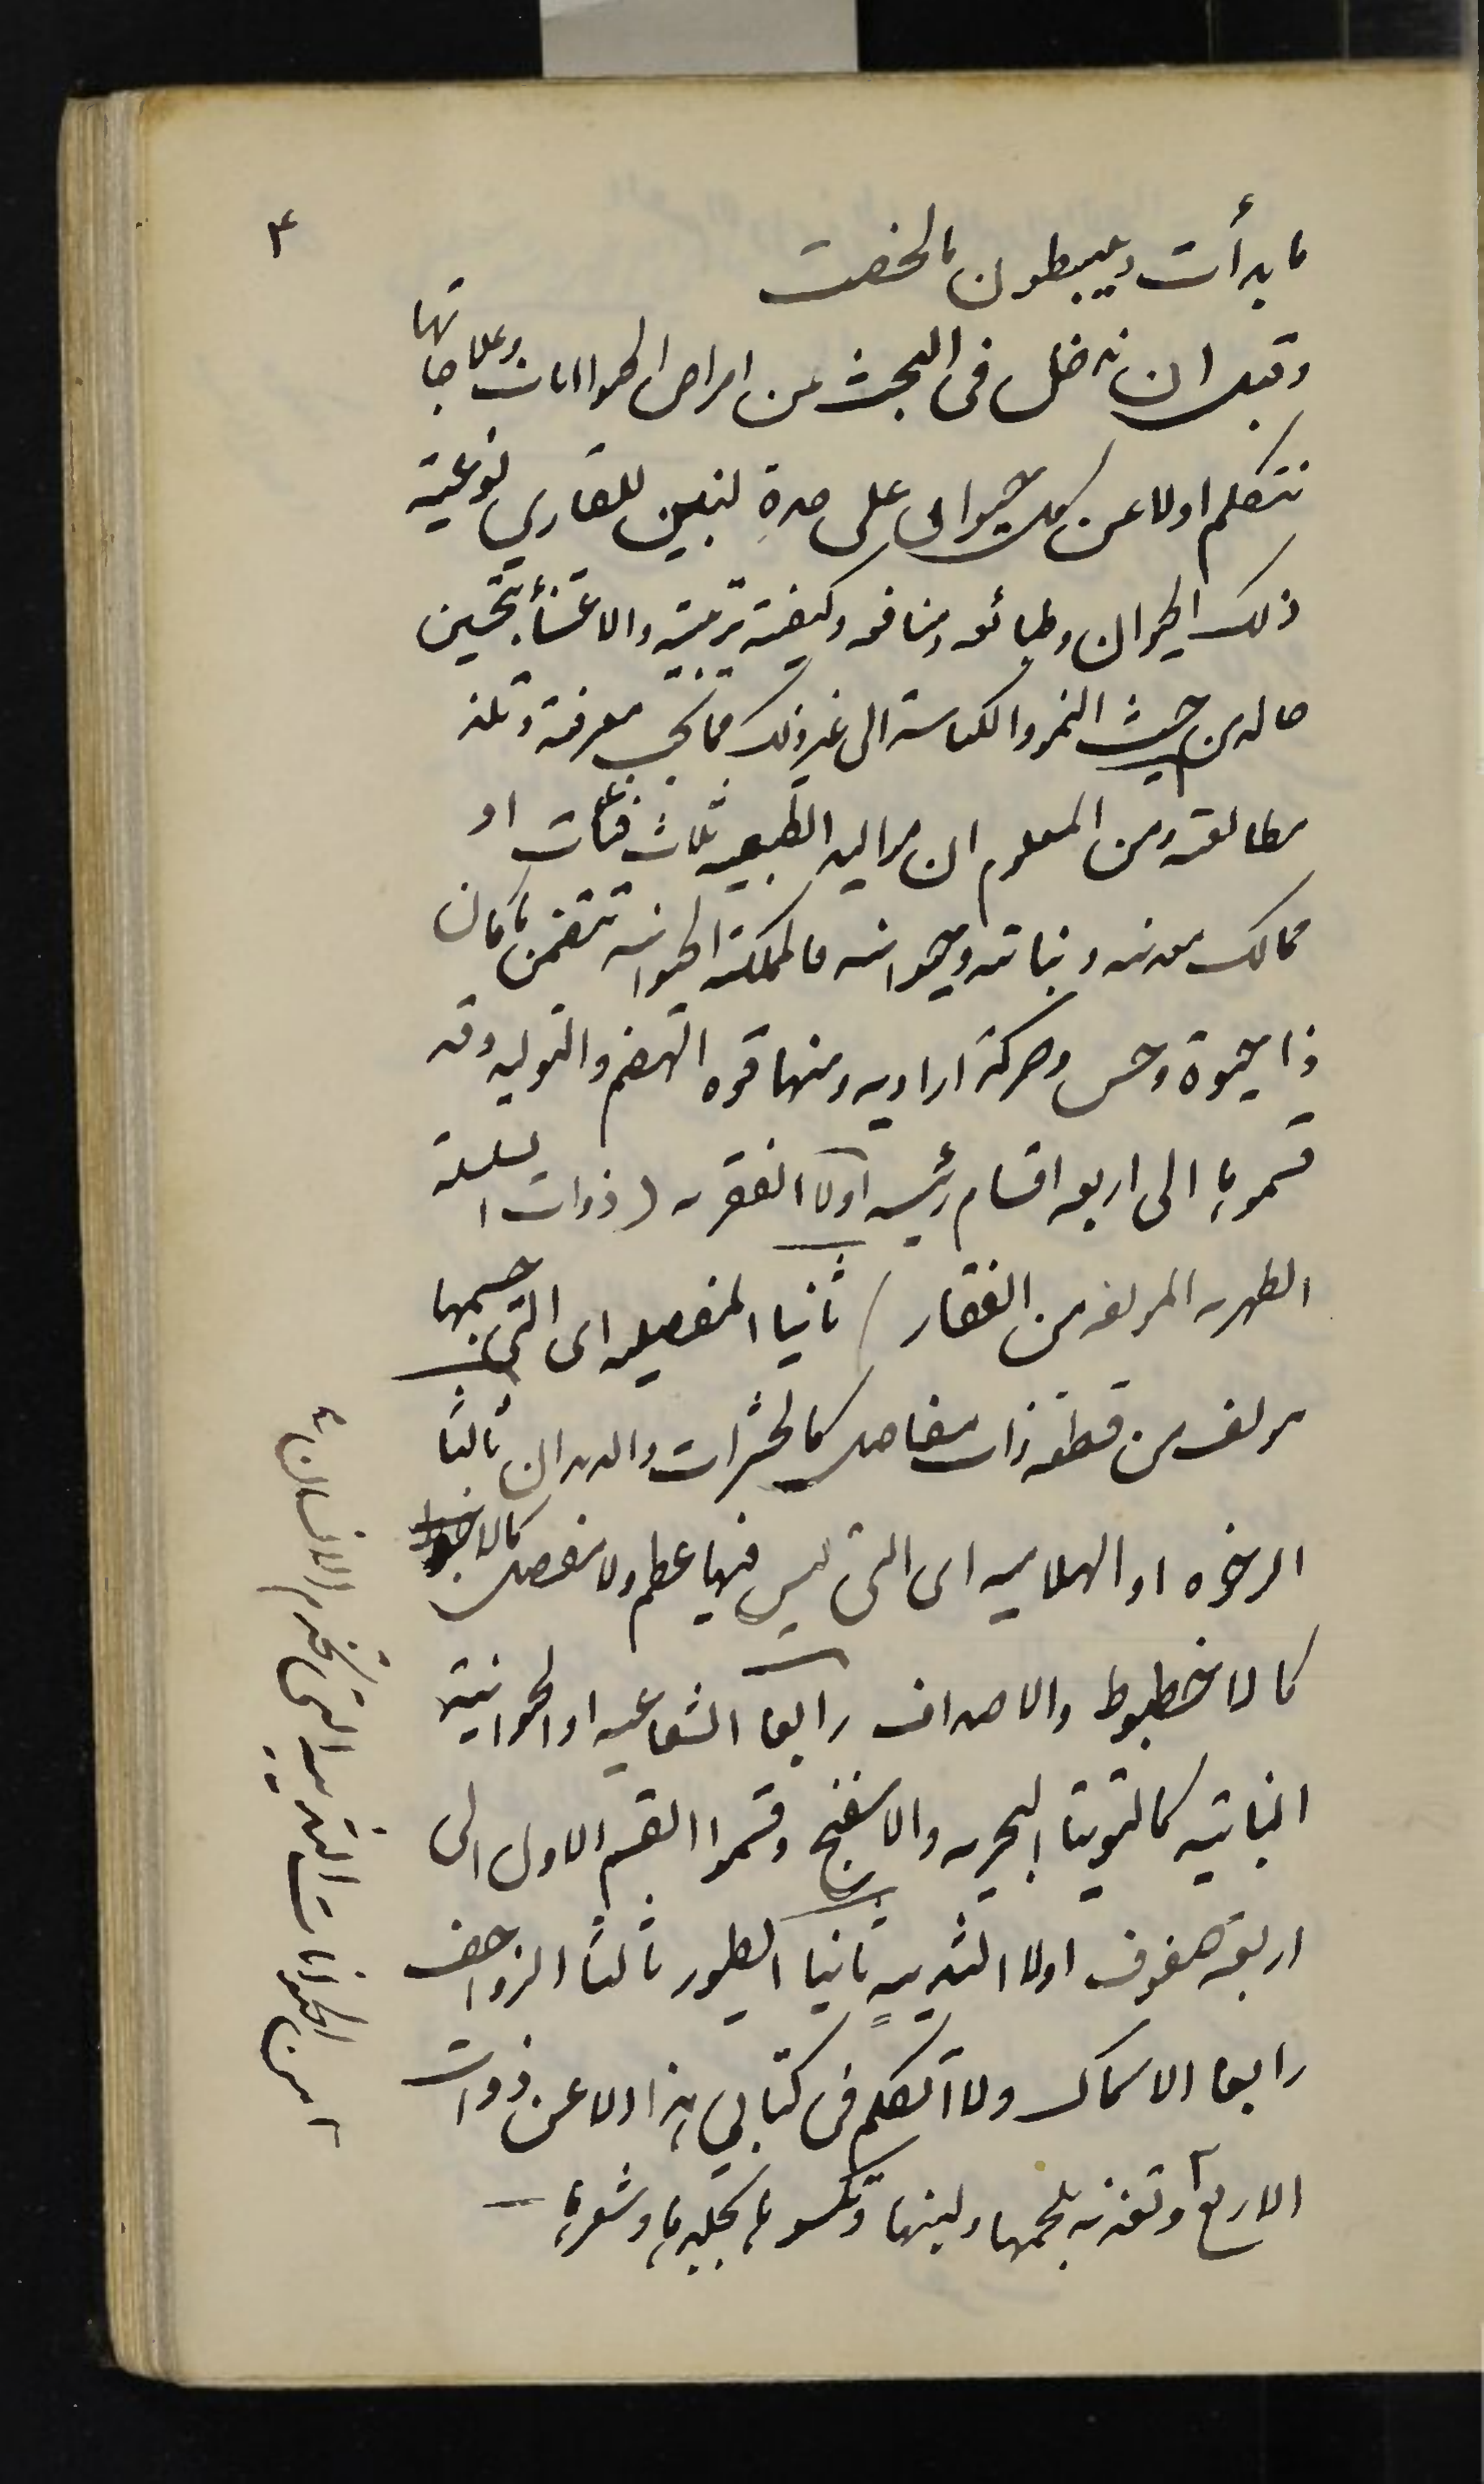 ٣
ما بدأت ويبيطرون بالخصب
وقبل ان ندخل فى البحث عن امراض الحيوانات وعلاجاتها
نتكلم اولا عن كل حيوان على حدةٍ لنبين للقاري نوعية
ذلك الحيوان وطبائعه ومنافعه وكيفية تربيته والاعتنأ بتحسين
حاله من حيث النمو والكياسة الى غير ذلك مما يجب معرفته وتلذ
مطالعته ومن المعلوم ان مواليد الطبيعيه ثلاث فئات او
ممالك معدنيه ونباتيه وحيوانيه فالمملكة الحيوانيه تتضمن ما كان
ذا حيوة وحس وحركة اراديه ومنها قوه الهضم والتوليد وقد
قسموها الى اربعه اقسام رئيسيه اولا الفقريه (ذوات السلسلة
الظهريه المولفه من الفقار) ثانيا المفصليه اى التى جسمها
مولف من قطعه ذات مفاصل كالحشرات والديدان ثالثا
الرخوه او الهلاميه اى التى ليس فيها عظم ولا مفصل
كالاخطبوط والاصداف رابعا الشعاعيه او الحيوانية
النباتيه كالتوتيا البحريه والاسفنج وقسموا القسم الاول الى
اربعة صفوف اولا الثدييه ثانيا الطيور ثالثا الزواحف
رابعا الاسماك ولا اتكلم فى كتابي هذا اولا عن ذوات
الاربع ٢ وتغذيه بلحمها ولبنها وتكسوه بجلدها وشعرها
٢ من الحيوانات الثدييه التى تخدم الانسان